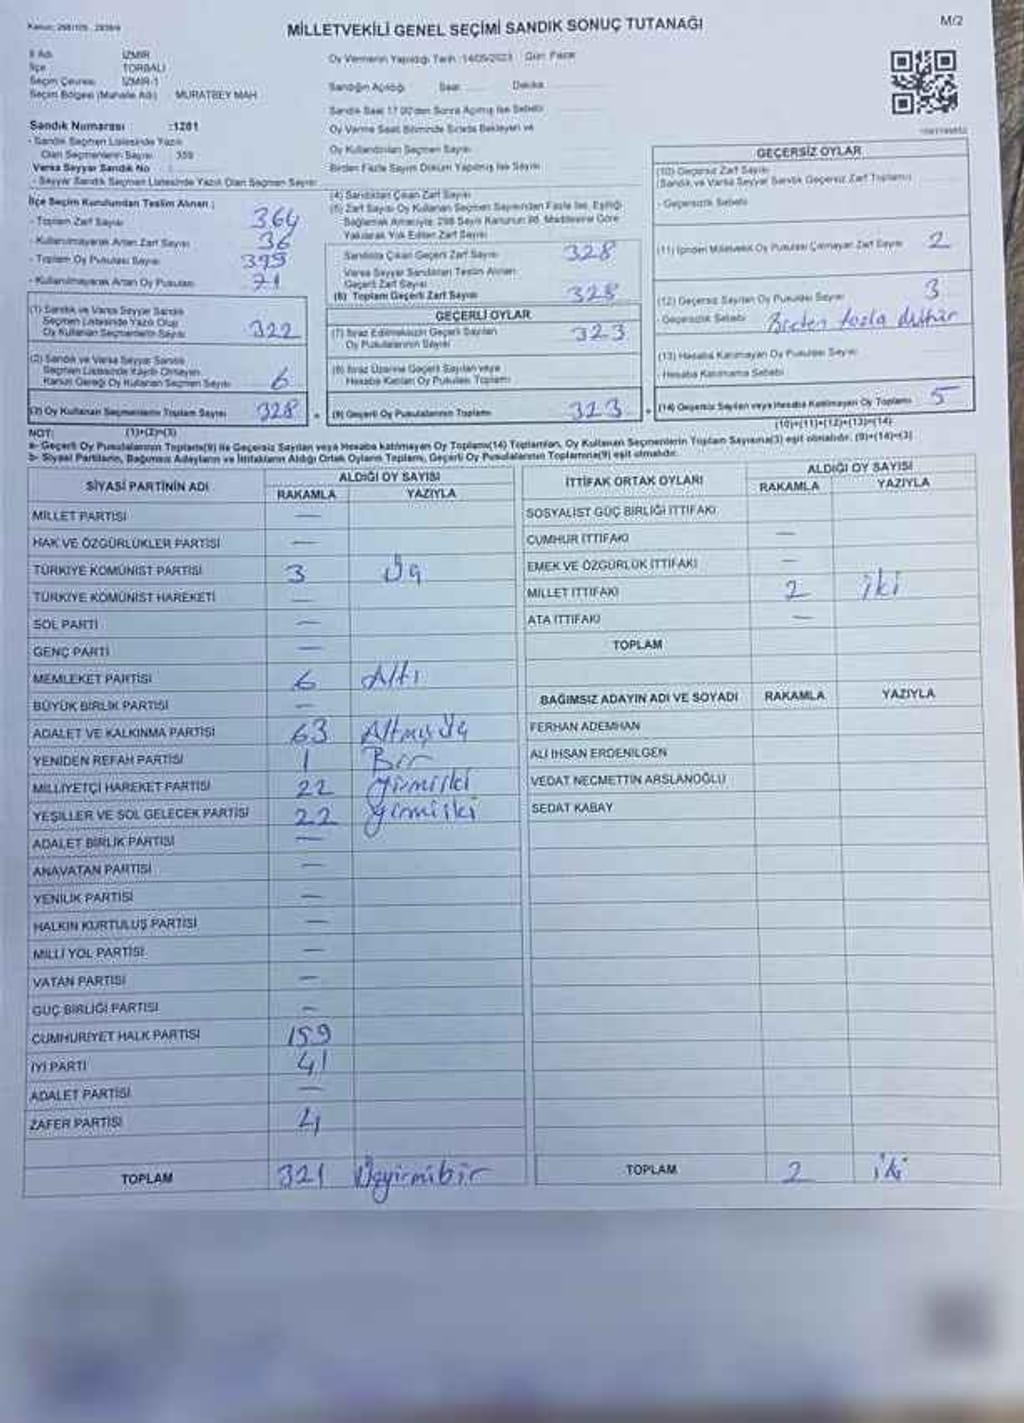 MİLLETVEKİLİ GENEL SEÇİMİ SANDIK SONUÇ TUTANAĞI
M/2
İl Adı İZMİR
İlçe TORBALI
Seçim Çevresi İZMİR-1
Seçim Bölgesi (Mahalle Adı) MURATBEY MAH
Sandık Numarası :1201
- Sandık Seçmen Listesinde Yazılı
Olan Seçmenlerin Sayısı 359
Varsa Seyyar Sandık No
- Seyyar Sandık Seçmen Listesinde Yazılı Olan Seçmen Sayısı
Oy Vermenin Yapıldığı Tarih :14/05/2023 Gün: Pazar
Sandığın Açıldığı Saat Dakika
Sandık Saat 17.00'den Sonra Açılmış İse Sebebi
Oy Verme Saati Bitiminde Sırada Bekleyen ve
Oy Kullandırılan Seçmen Sayısı
Birden Fazla Sayım Döküm Yapılmış İse Sayısı
İlçe Seçim Kurulundan Teslim Alınan ;
- Toplam Zarf Sayısı 364
- Kullanılmayarak Artan Zarf Sayısı 36
- Toplam Oy Pusulası Sayısı 399
- Kullanılmayarak Artan Oy Pusulası 71
(1) Sandık ve Varsa Seyyar Sandık
Seçmen Listesinde Yazılı Olup
Oy Kullanan Seçmenlerin Sayısı 322
(2) Sandık ve Varsa Seyyar Sandık
Seçmen Listesinde Kayıtlı Olmayan
Kanun Gereği Oy Kullanan Seçmen Sayısı 6
(3) Oy Kullanan Seçmenlerin Toplam Sayısı 328
(4) Sandıktan Çıkan Zarf Sayısı
(5) Zarf Sayısı Oy Kullanan Seçmen Sayısından Fazla İse, Eşitliği
Sağlamak Amacıyla; 298 Sayılı Kanunun 98. Maddesine Göre
Yakılarak Yok Edilen Zarf Sayısı
Sandıkta Çıkan Geçerli Zarf Sayısı 328
Varsa Seyyar Sandıktan Teslim Alınan
Geçerli Zarf Sayısı
(6) Toplam Geçerli Zarf Sayısı 328
GEÇERLİ OYLAR
(7) İtiraz Edilmeksizin Geçerli Sayılan
Oy Pusulalarının Sayısı 323
(8) İtiraz Üzerine Geçerli Sayılan veya
Hesaba Katılan Oy Pusulası Toplamı
(9) Geçerli Oy Pusulalarının Toplamı 323
GEÇERSİZ OYLAR
(10) Geçersiz Zarf Sayısı
(Sandık ve Varsa Seyyar Sandık Geçersiz Zarf Toplamı)
- Geçersizlik Sebebi
(11) İçinden Milletvekili Oy Pusulası Çıkmayan Zarf Sayısı 2
(12) Geçersiz Sayılan Oy Pusulası Sayısı 3
- Geçersizlik Sebebi Birden fazla mühür
(13) Hesaba Katılmayan Oy Pusulası Sayısı
- Hesaba Katılmama Sebebi
(14) Geçersiz Sayılan veya Hesaba Katılmayan Oy Toplamı 5
NOT: (1)+(2)=(3) (10)+(11)+(12)+(13)=(14)
a- Geçerli Oy Pusulalarının Toplamı(9) ile Geçersiz Sayılan veya Hesaba katılmayan Oy Toplamı(14) Toplamları, Oy Kullanan Seçmenlerin Toplam Sayısına(3) eşit olmalıdır. (9)+(14)=(3)
b- Siyasi Partilerin, Bağımsız Adayların ve İttifakların Aldığı Ortak Oyların Toplamı, Geçerli Oy Pusulalarının Toplamına(9) eşit olmalıdır.
SİYASİ PARTİNİN ADI ALDIĞI OY SAYISI
RAKAMLA YAZIYLA
MİLLET PARTİSİ —
HAK VE ÖZGÜRLÜKLER PARTİSİ —
TÜRKİYE KOMÜNİST PARTİSİ 3 Üç
TÜRKİYE KOMÜNİST HAREKETİ —
SOL PARTİ —
GENÇ PARTİ —
MEMLEKET PARTİSİ 6 Altı
BÜYÜK BİRLİK PARTİSİ —
ADALET VE KALKINMA PARTİSİ 63 Altmış Üç
YENİDEN REFAH PARTİSİ 1 Bir
MİLLİYETÇİ HAREKET PARTİSİ 22 yirmi iki
YEŞİLLER VE SOL GELECEK PARTİSİ 22 yirmi iki
ADALET BİRLİK PARTİSİ —
ANAVATAN PARTİSİ —
YENİLİK PARTİSİ —
HALKIN KURTULUŞ PARTİSİ —
MİLLİ YOL PARTİSİ —
VATAN PARTİSİ —
GÜÇ BİRLİĞİ PARTİSİ —
CUMHURİYET HALK PARTİSİ 159
İYİ PARTİ 41
ADALET PARTİSİ —
ZAFER PARTİSİ 4
TOPLAM 321 Üçyirmibir
İTTİFAK ORTAK OYLARI ALDIĞI OY SAYISI
RAKAMLA YAZIYLA
SOSYALİST GÜÇ BİRLİĞİ İTTİFAKI
CUMHUR İTTİFAKI —
EMEK VE ÖZGÜRLÜK İTTİFAKI —
MİLLET İTTİFAKI 2 iki
ATA İTTİFAKI —
TOPLAM
BAĞIMSIZ ADAYIN ADI VE SOYADI RAKAMLA YAZIYLA
FERHAN ADEMHAN
ALİ İHSAN ERDENİLGEN
VEDAT NECMETTİN ARSLANOĞLU
SEDAT KABAY
TOPLAM 2 iki